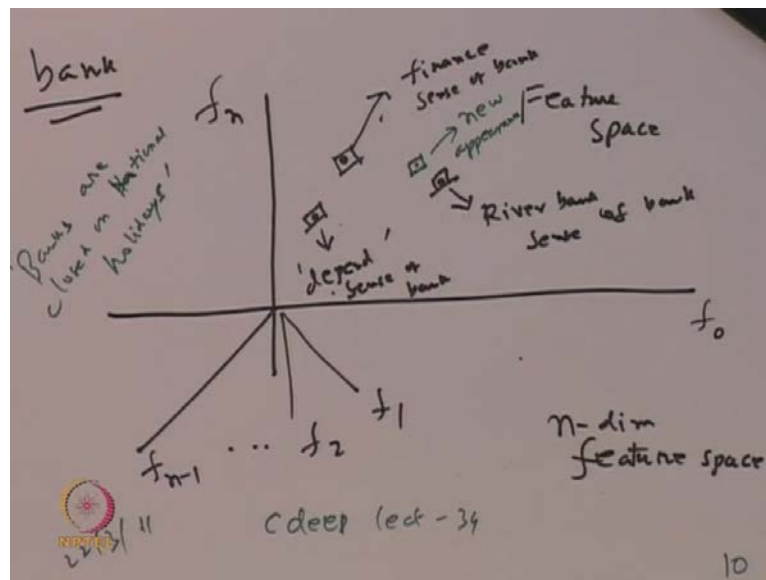 bank
'Banks are
closed on National
holidays'
fn
finance
sense of bank
new
appearance
Feature
space
River bank
sense of bank
'depend'
sense of
bank
f0
f1
f2
...
fn-1
n-dim
feature space
NPTEL
22/3/11
cdeep lect - 34
10